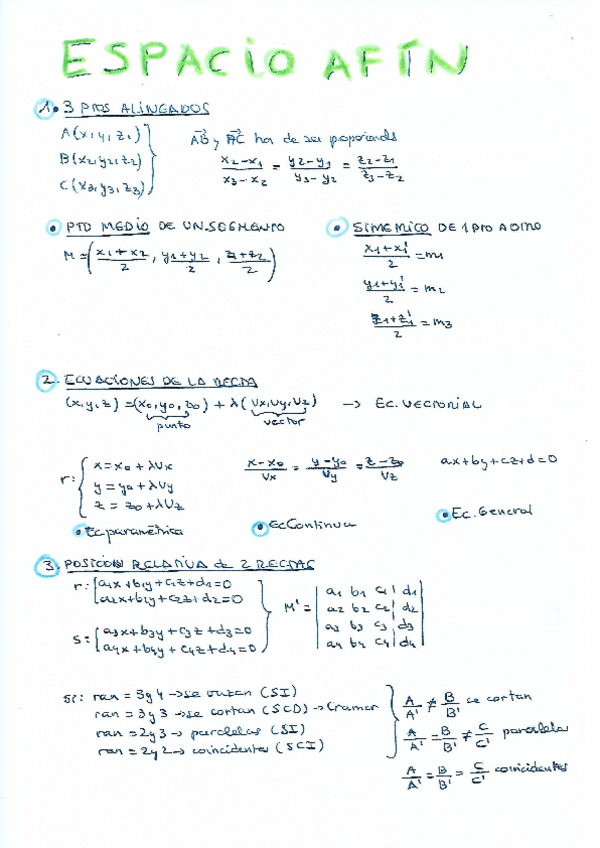 ESPACIO AFÍN
1. 3 PTOS ALINGADOS
A(x₁y₁z₁)
B(x₂y₂z₂)
C(x₃,y₃,z₃)
AB y AC han de ser proporcionals
x₂-x₁/x₃-x₂ = y₂-y₁/y₃-y₂ = z₂-z₁/z₃-z₂
• PTO MEDIO DE UN SEGMENTO
M = (x₁+x₂/2, y₁+y₂/2, z₁+z₂/2)
• SIMETRICO DE 1 PTO A OTRO
x₁+x₁'/2 = m₁
y₁+y₁'/2 = m₂
z₁+z₁'/2 = m₃
2. ECUACIONES DE LA RECTA
(x,y,z) = (x₀,y₀,z₀) + λ(Vx,Vy,Vz) → EC.VECTORIAL
punto vector
r: { x = x₀ + λVx
y = y₀ + λVy
z = z₀ + λVz
• Ec paramétrica
x-x₀/Vx = y-y₀/Vy = z-z₀/Vz
• Ec Continua
ax+by+cz+d=0
• Ec. General
3. POSICION RELATIVA de 2 RECTAS
r: { a₁x+b₁y+c₁z+d₁=0
a₂x+b₂y+c₂z+d₂=0
s: { a₃x+b₃y+c₃z+d₃=0
a₄x+b₄y+c₄z+d₄=0
M' = | a₁ b₁ c₁ | d₁ |
a₂ b₂ c₂ | d₂
a₃ b₃ c₃ | d₃
a₄ b₄ c₄ | d₄
Si: ran = 3y4 → se cruzan (SI)
ran = 3y3 → se cortan (SCD) → Cramer
ran = 2y3 → paralelas (SI)
ran = 2y2 → coincidentes (SCI)
A/A' ≠ B/B' se cortan
A/A' = B/B' ≠ C/C' paralelas
A/A' = B/B' = C/C' coincidentes